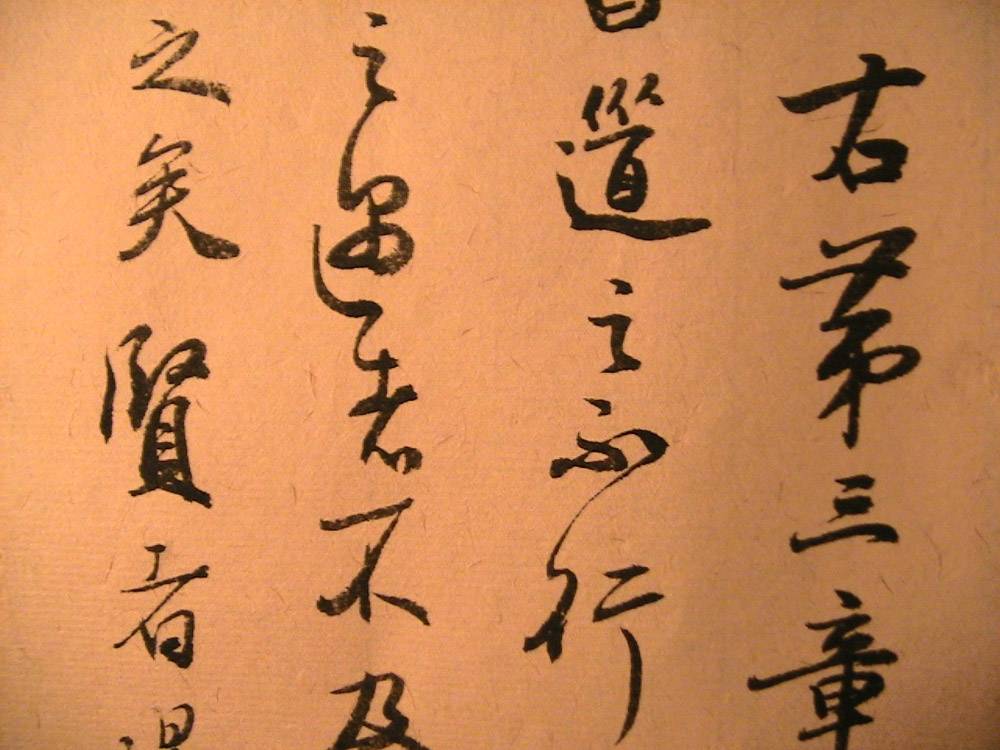 右第三章
曰道之不行
之過者不及
之矣賢者過